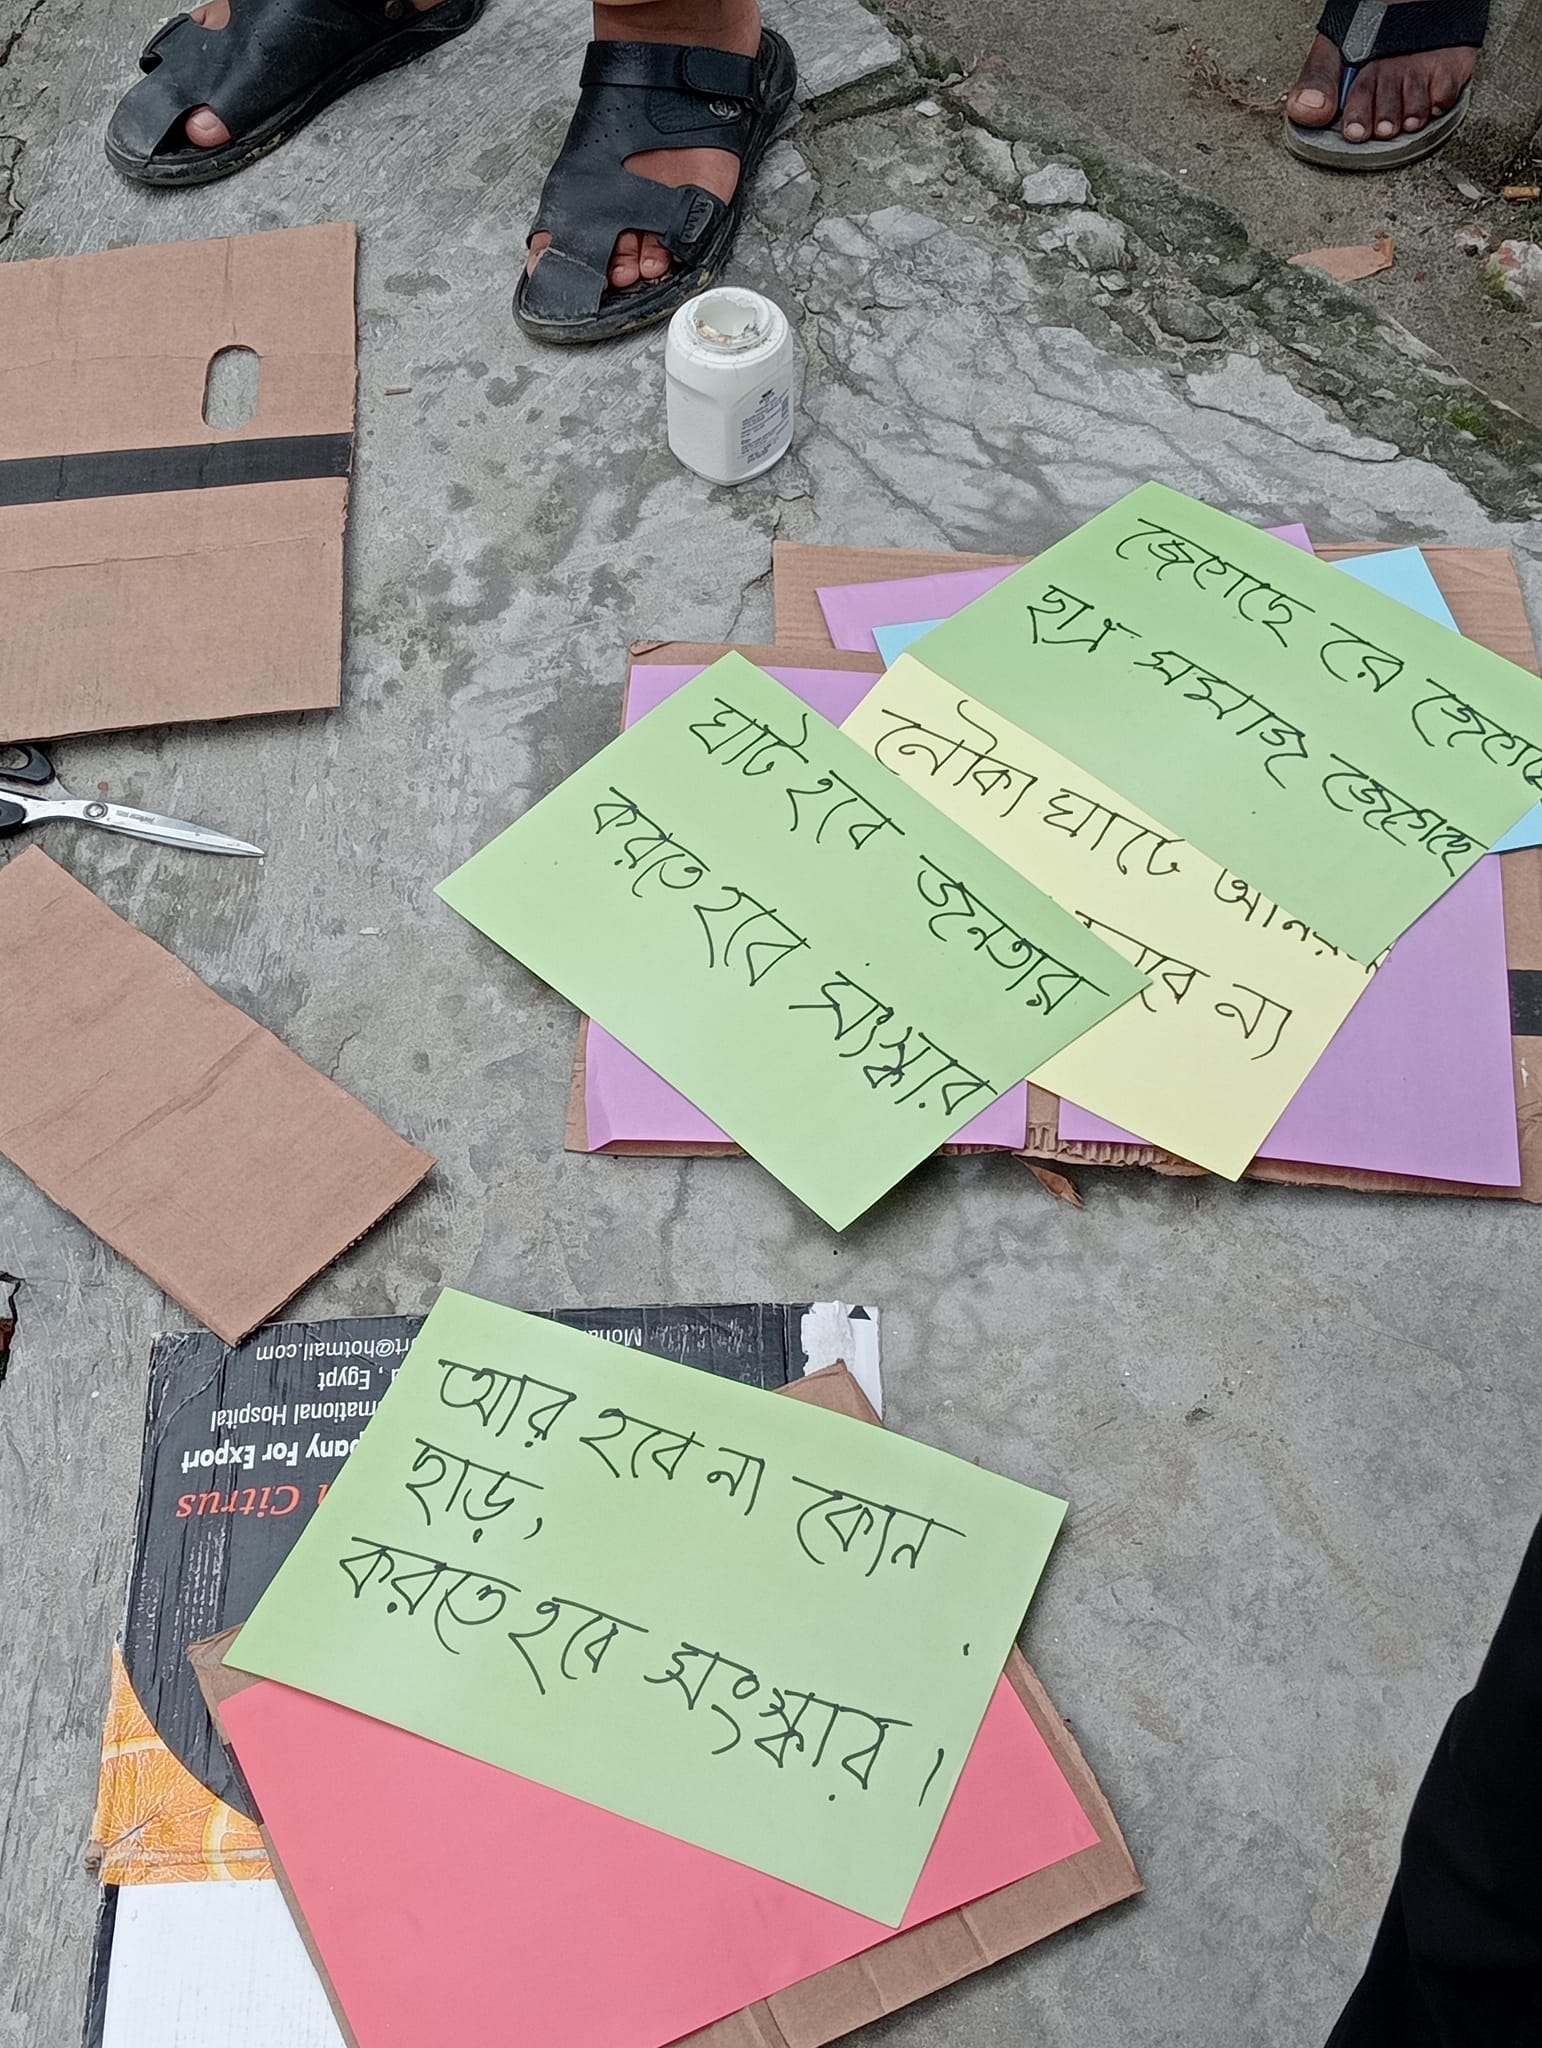 জেগেছে রে জেগেছে
ছাত্র সমাজ জেগেছে
নৌকা ঘাটে
না
ঘাট হবে জনতার
করতে হবে সংস্কার
আর হবে না কোন
ছাড়,
করতে হবে সংস্কার।
Citrus
For Export
Hospital
, Egypt
@hotmail.com